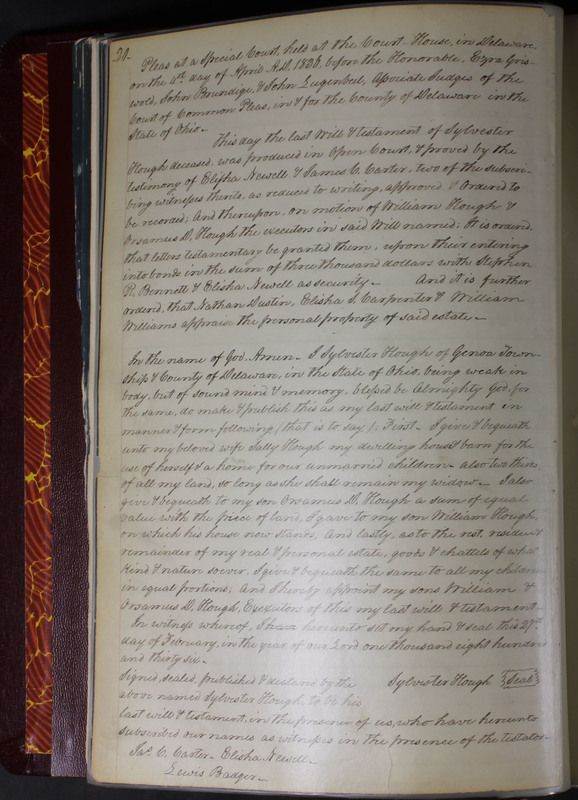 20-
Pleas at a Special Court, held at the Court House, in Delaware,
on the 4th day of April A.D. 1836, before the Honorable, Ezra Gris-
wold, John Brundige, & John Lugenbeel, Associate Judges of the
Court of Common Pleas, in & for the County of Delaware in the
State of Ohio-
This day the last Will & testament of Sylvester
Hough deceased, was produced in Open Court, & proved by the
testimony of Elisha Newell & James C. Carter, two of the subscri-
bing witnesses thereto, as reduced to writing, approved & Ordered to
be recorded; And thereupon, on motion of William Hough &
Orsamus D. Hough the executors in said Will named; It is ordered,
that letters testamentary be granted them, upon their entering
into bonds in the sum of three thousand dollars with Stephen
R. Bennett & Elisha Newell as security- And it is further
ordered, that Nathan Dustin, Elisha S. Carpenter & William
Williams appraise the personal property of said estate-
In the name of God. Amen- I Sylvester Hough of Genoa Town-
ship & County of Delaware, in the State of Ohio, being weak in
body, but of sound mind & memory, blessed be Almighty God, for
the same, do make & publish this as my last will & testament in
manner & form following (that is to say). First- I give & bequeath
unto my beloved wife Sally Hough my dwelling house & barn for the
use of herself & a home for our unmarried children- also two thirds
of all my land, so long as she shall remain my widow- I also
give & bequeath to my son Orsamus D. Hough a sum of equal
value with the price of land, I gave to my son William Hough,
on which his house now stands, And lastly, as to the rest, residue &
remainder of my real & personal estate, goods & chattels of what
kind & nature soever, I give & bequeath the same to all my children
in equal portions; And I hereby appoint my sons William &
Orsamus D. Hough, Executors of this my last will & testament-
In witness whereof, I have hereunto set my hand & seal this 27th
day of February, in the year of our Lord one thousand eight hundred
and thirty six-
Signed, sealed, published & declared by the Sylvester Hough Seal
above named Sylvester Hough, to be his
last will & testament, in the presence of us, who have hereunto
subscribed our names as witnesses in the presence of the testator-
Jas. C. Carter- Elisha Newell-
Lewis Badger-